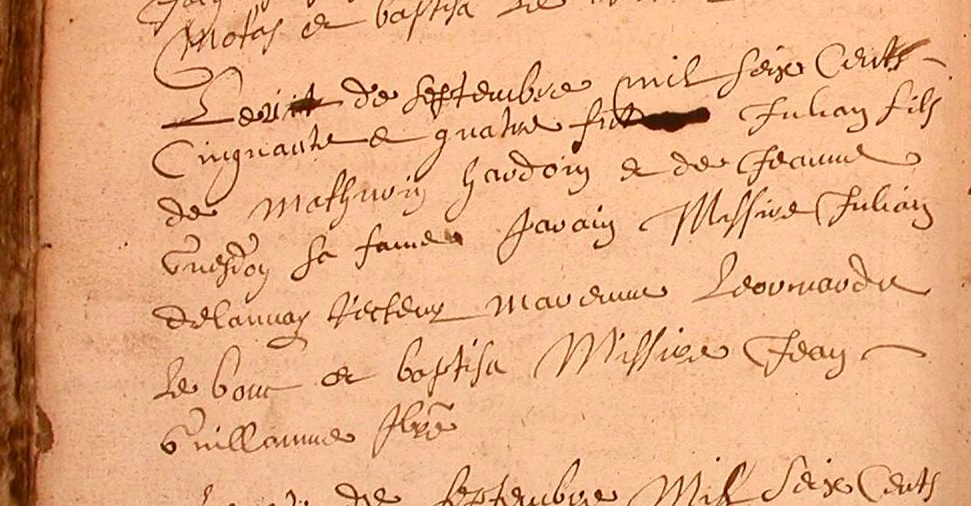 Motas et baptisa
Le de septembre mil seix Cents
Cinquante et quatre fut Julian fils
de Mathurin hardoin et de Jeanne
sa famee parain Missire Julian
delaunay recteur marenne Leonnarde
le bouc et baptisa Missire Jean
Guillaumme pbre
de septembre Mil seix Cents